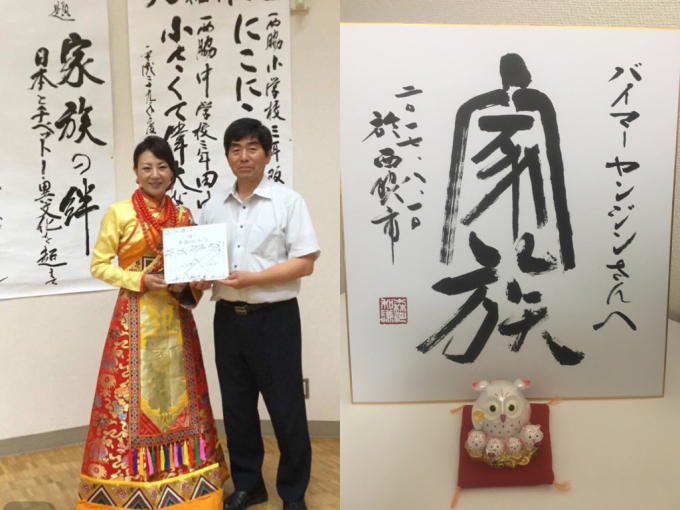 題
家族の絆
日本とチベット!異文化を超えて
にこにこ
西脇小学校三年
小さくて偉大な
西脇中学校三年田口
平成二十九年度
バイマーヤンジンさんへ
家族
二〇一七.八.一〇
於西脇市